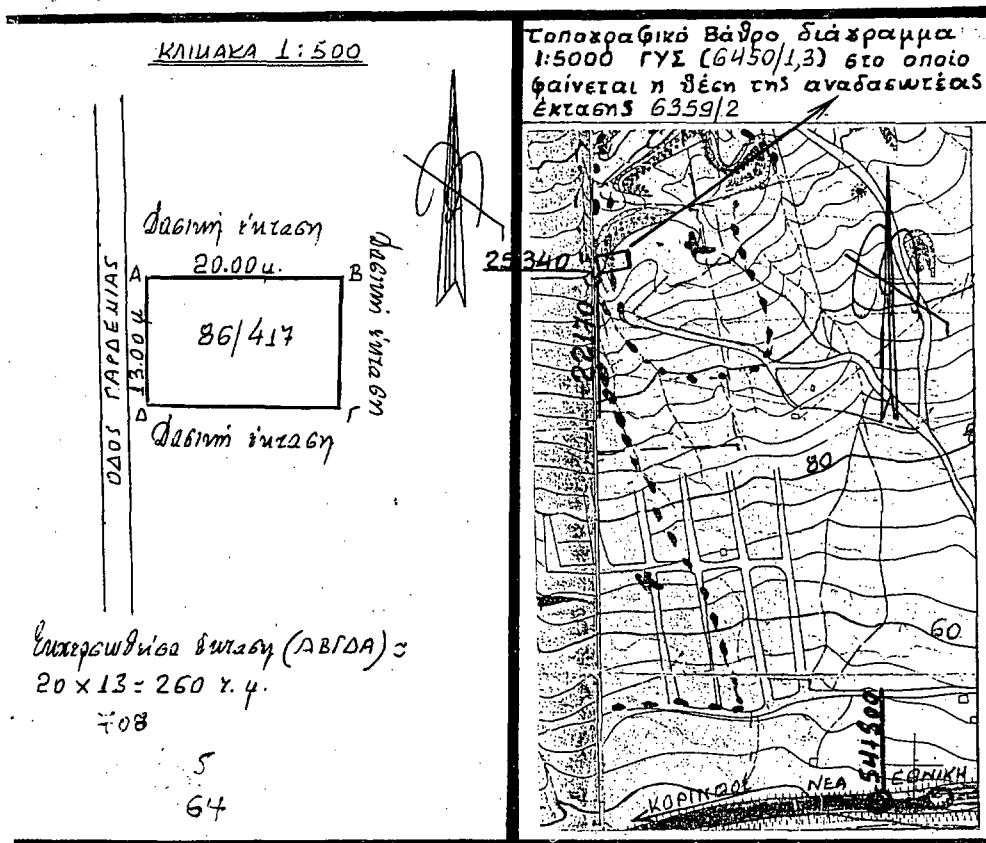 ΚΛΙΜΑΚΑ 1:500
Δασική έκταση
20.00 μ.
Α
Β
ΟΔΟΣ ΓΑΡΔΕΝΙΑΣ
13.00 μ
86/417
Δασική έκταση
Δ
Γ
Δασική έκταση
Εκχερσωθείσα έκταση (ΑΒΓΔΑ) =
20 x 13 = 260 τ.μ.
5
64
Τοπογραφικό Βάθρο διάγραμμα
1:5000 ΓΥΣ (6450/1,3) στο οποίο
φαίνεται η θέση της αναδασωτέας
έκτασης 6359/2
25340
22170
80
60
541500
ΚΟΡΙΝΘΟΣ
ΝΕΑ
ΕΘΝΙΚΗ